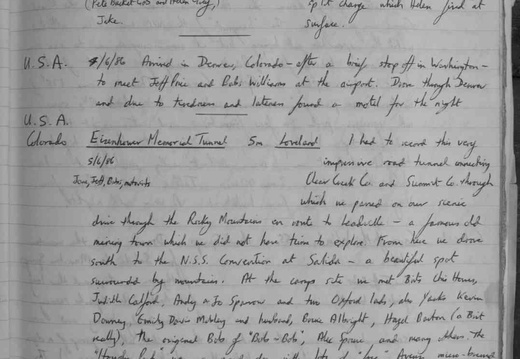 (Pete Basket Cass and Helen
split charge which Helen fired at
Jake.
surface.
U.S.A. 4/6/86 Arrived in Denver, Colorado - after a brief stop off in Washington -
to meet Jeff Price and Bob Williams at the airport. Drove through Denver
and due to tiredness and lateness found a motel for the night
U.S.A.
Colorado Eisenhower Memorial Tunnel 5m Loveland I had to record this very
5/6/86 impressive road tunnel connecting
Jeff, Bob, Clear Creek Co. and Summit Co. through
which we passed on our scenic
drive through the Rocky Mountains en route to Leadville - a famous old
mining town which we did not have time to explore. From here we drove
south to the N.S.S. Convention at Salida - a beautiful spot
surrounded by mountains. At the camp site we met Bob
Judith Calford, Andy + Jo Sparrow and two Oxford lads, also Yanks Kevin
Downey, Emily Davis Mobley and husband, Albright, Hazel Barton (a Brit
really), the original Bob of "Bob-Bob", and many others. The
with lots of "free"